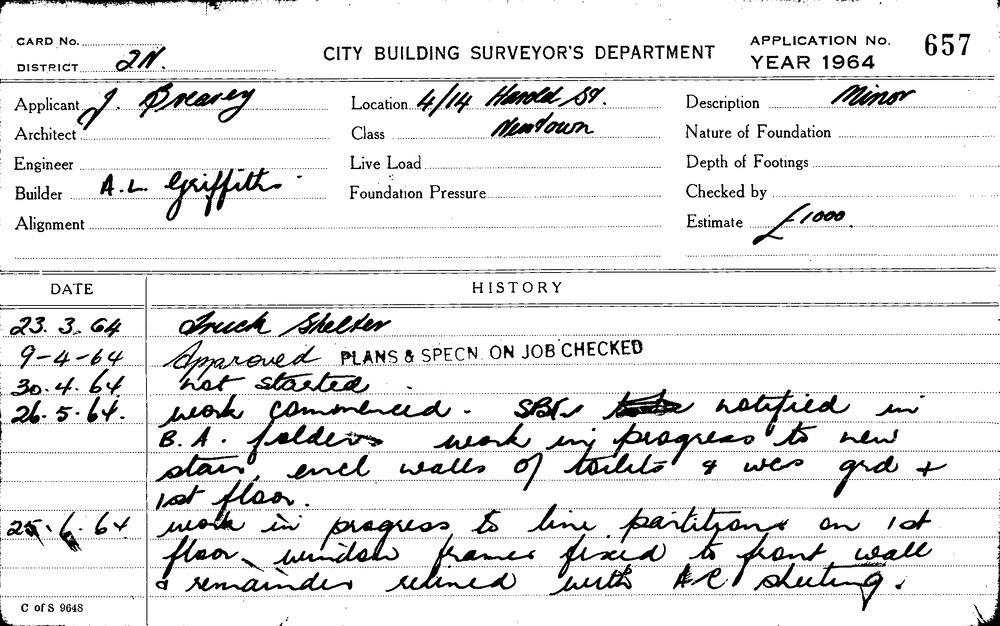 CARD No.
DISTRICT 2N.
CITY BUILDING SURVEYOR'S DEPARTMENT
APPLICATION No. 657
YEAR 1964
Applicant J. Brearey
Location 4/14 Harold St.
Description Minor
Architect
Class Newtown
Nature of Foundation
Engineer
Live Load
Depth of Footings
Builder A.L. Griffiths
Foundation Pressure
Checked by
Alignment
Estimate £1000.
DATE HISTORY
23.3.64 Truck Shelter
9-4-64 Approved PLANS & SPECN. ON JOB CHECKED
30.4.64 not started
26.5.64. work commenced. notified in
B.A. folders work in progress to new
stair, encl walls of toilets & wcs grd +
1st floor.
25.6.64 work in progress to line partitions on 1st
floor, window frames fixed to front wall
& remainder relined with AC sheeting.
C of S 9648